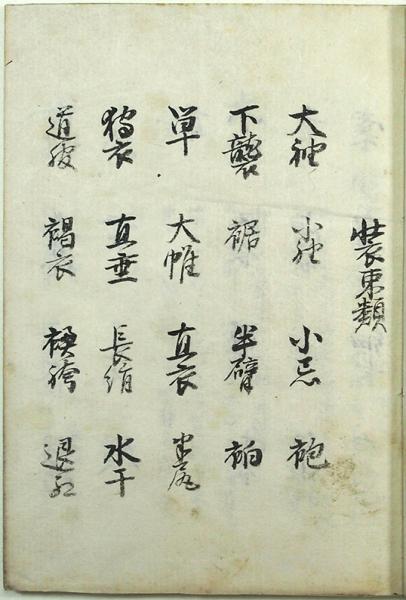 装束類
大袖 小袖 小忌 袍
下襲 裾 半臂 袙
単 大帷 直衣 半尻
狩衣 直垂 長絹 水干
道服 褐衣 襖袴 退紅